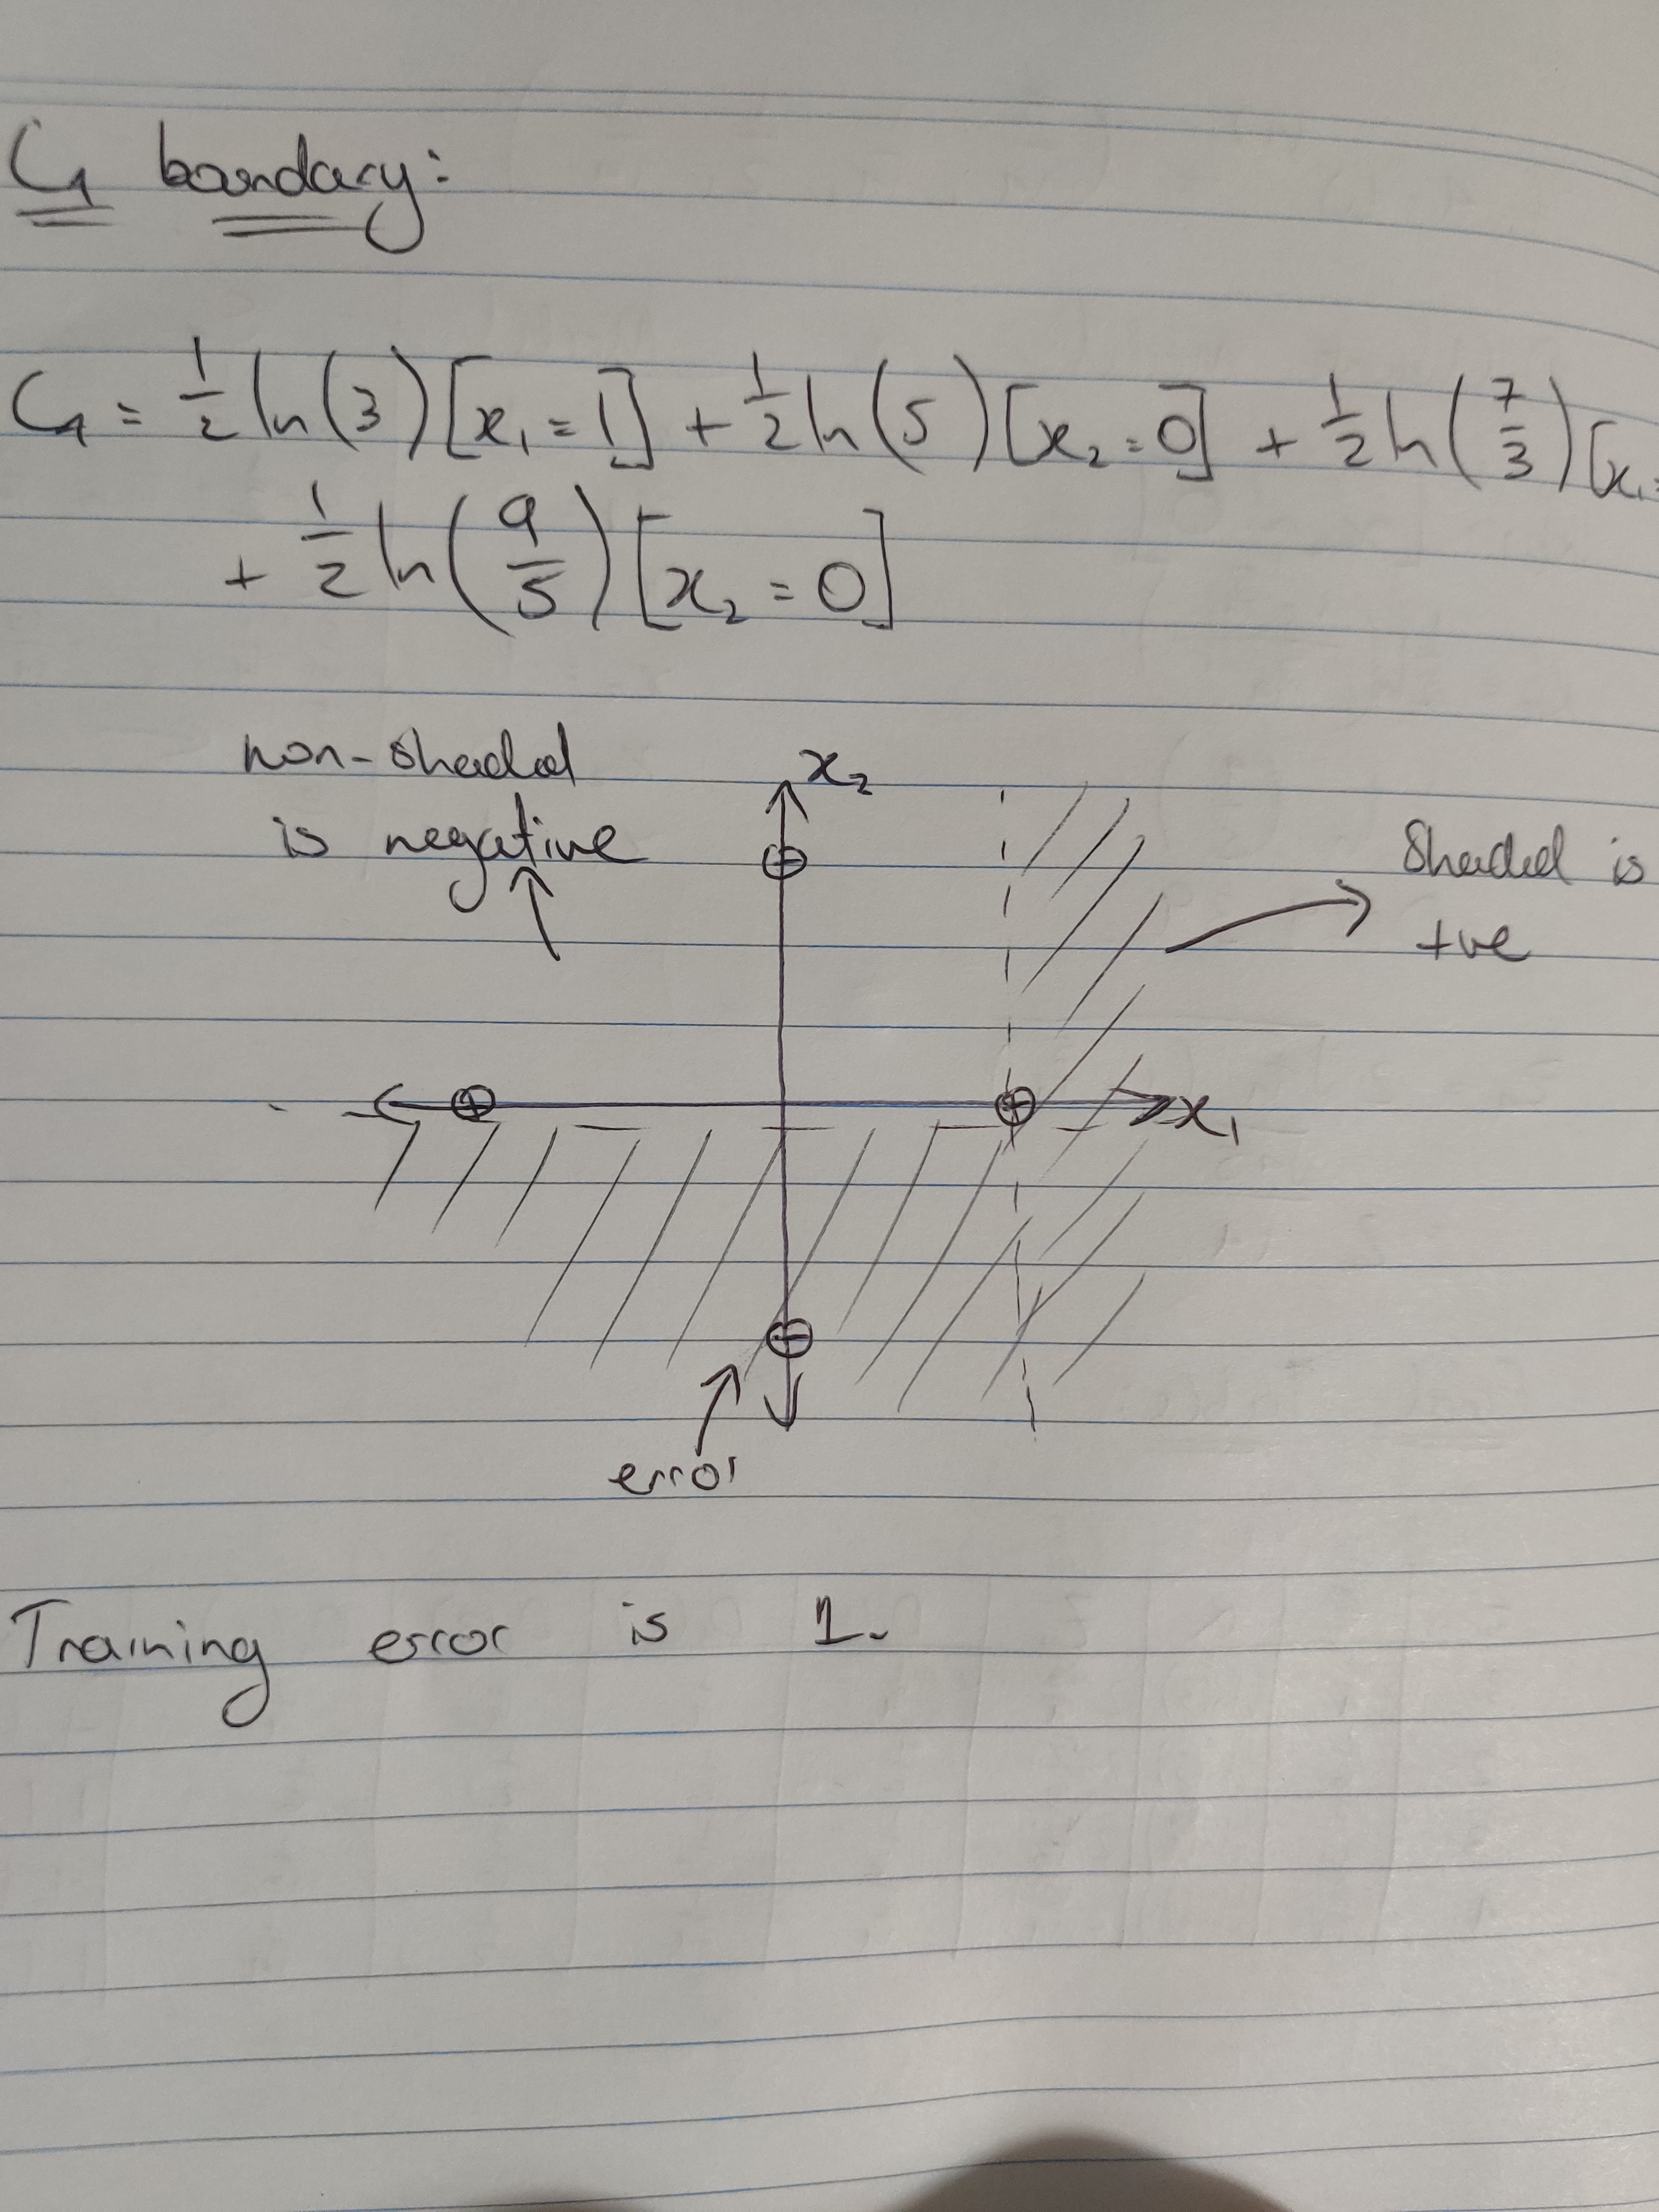 C4 boundary:
C4 = 1/2 ln(3)[x₁ = 1] + 1/2 ln(5)[x₂ = 0] + 1/2 ln(7/3)[x₁ =
+ 1/2 ln(9/5)[x₂ = 0]
non-shaded
is negative
x₂
Shaded is
+ve
x₁
error
Training error is 1.